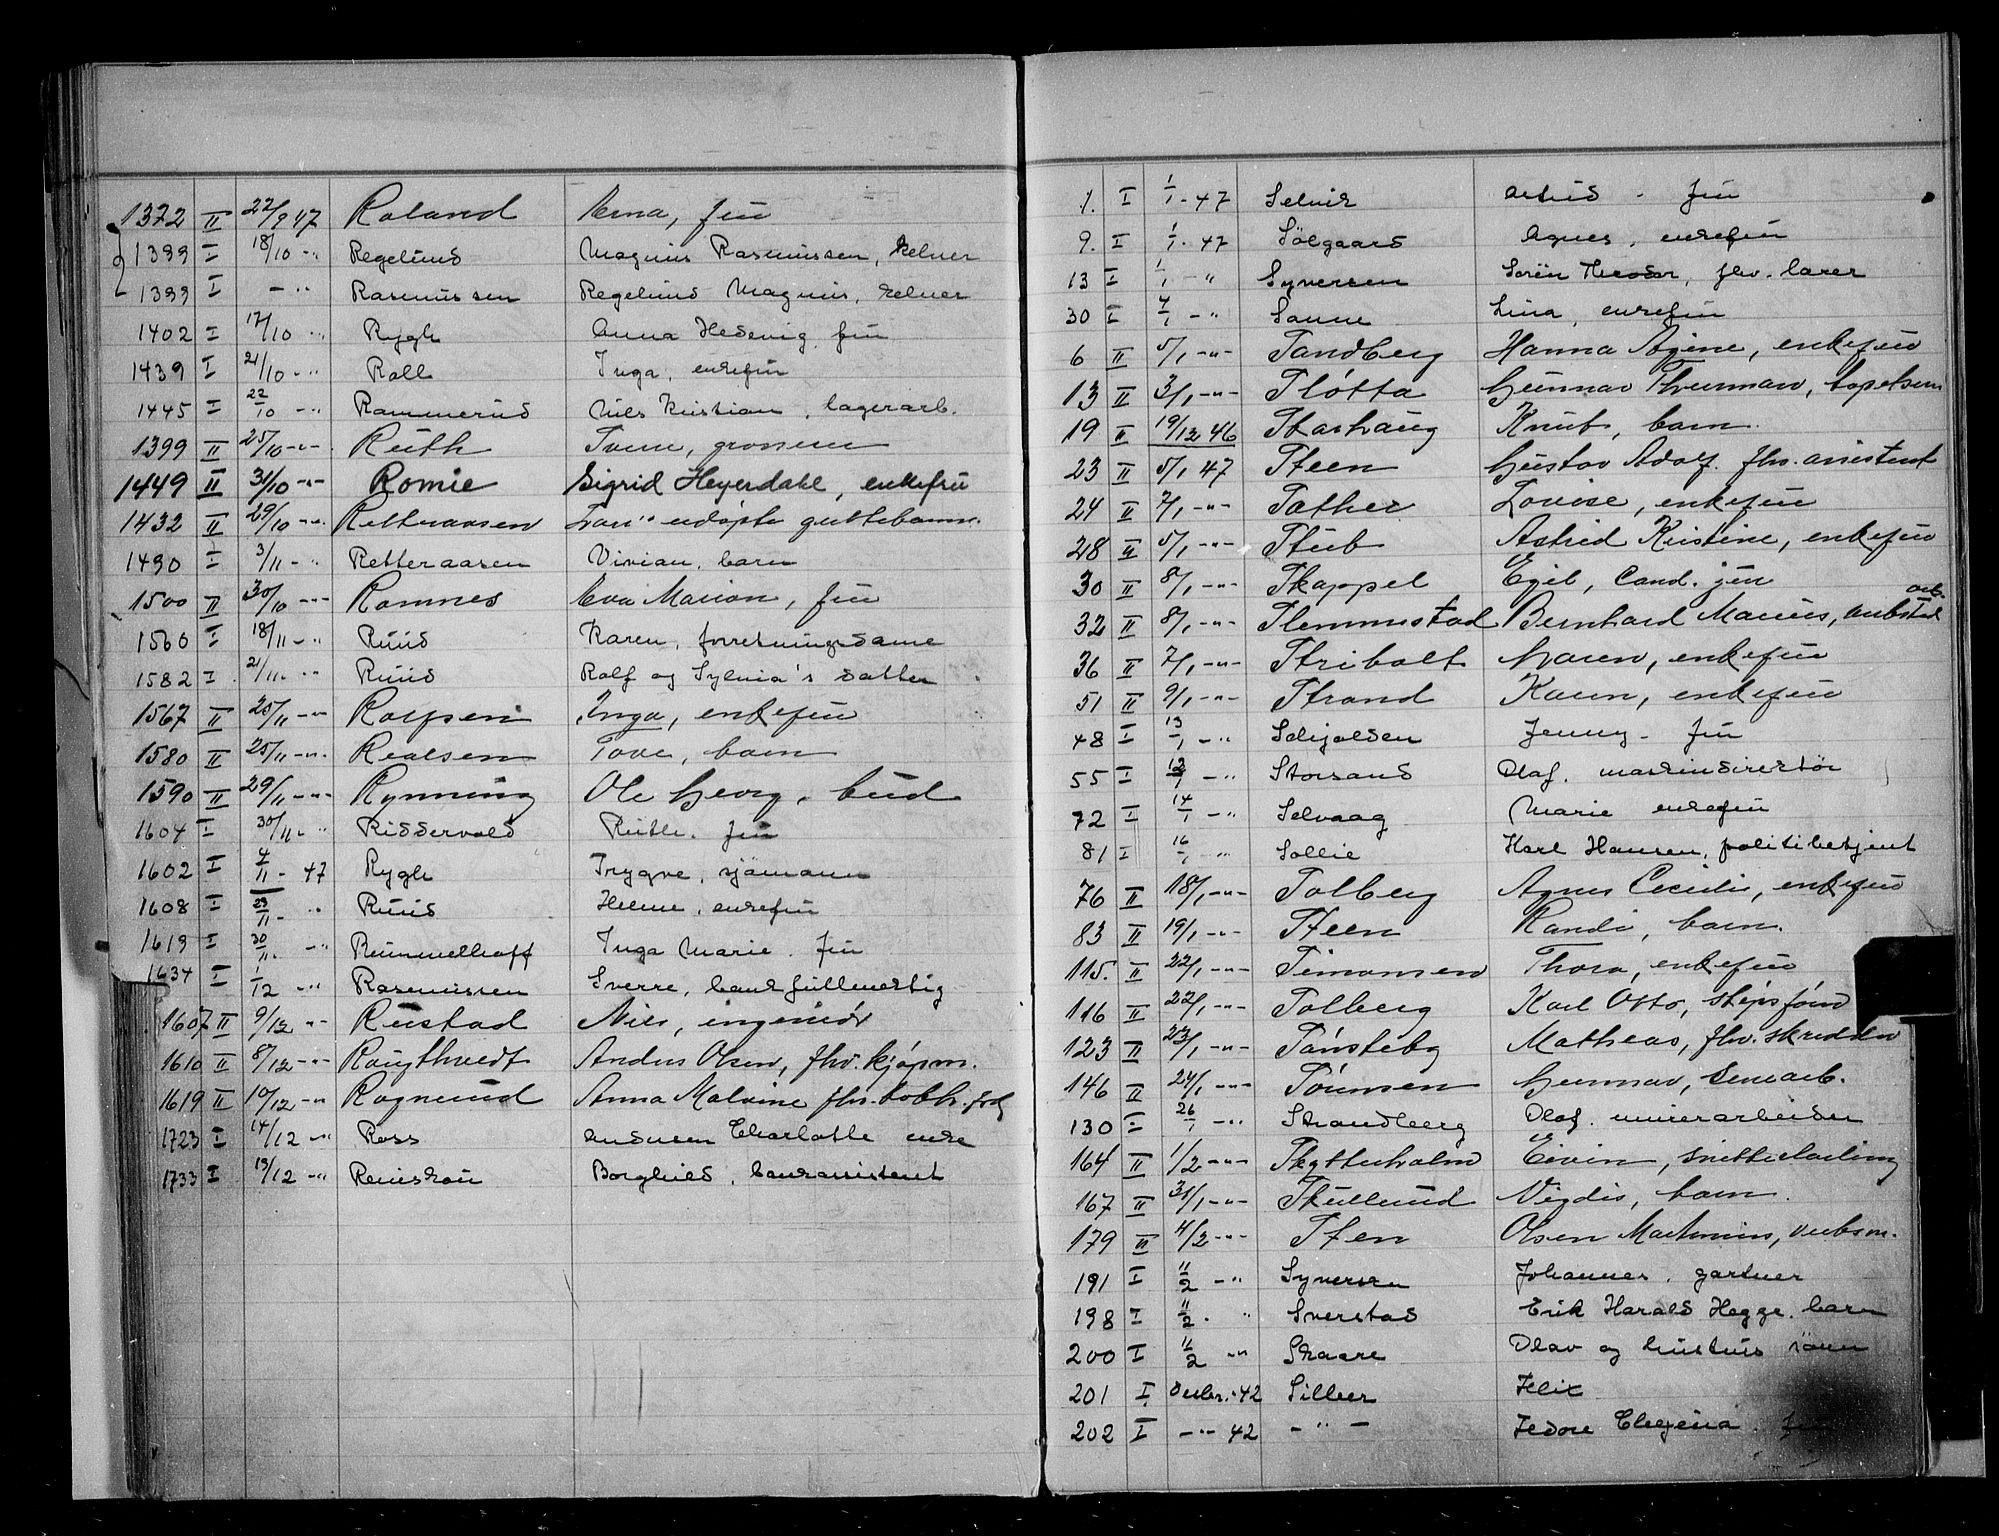 1372 II 22/9 47 Roland Erna, fru
1399 I 18/10 -"- Regelund Magnus Rasmussen, kelner
1399 I - -"- Rasmussen Regelund Magnus, kelner
1402 I 17/10 -"- Rygh Anna Hedevig, fru
1439 I 21/10 -"- Roll Inga, enkefru
1445 I 22/10 -"- Rammerud Nils Kristian, lagerarb.
1399 II 25/10 -"- Ruth Tvene, grosserer
1449 II 31/10 -"- Romie Sigrid Heyerdahl, enkefru
1432 II 29/10 -"- Retteraasen udøpte guttebarn
1490 I 3/11 -"- Retteraasen Vivian, barn
1500 II 30/10 -"- Ramnes Eva Marion, fru
1560 I 18/11 -"- Ruud Karen, forretningsdame
1582 I 21/11 -"- Ruud Rolf og Sylvia's datter
1567 II 20/11 -"- Rolfsen Inga, enkefru
1580 II 25/11 -"- Realsen Tove, barn
1590 II 29/11 -"- Rynning Ole Georg, bud
1604 I 30/11 -"- Riddervold Ruth, fru
1602 I 4/11 - 47 Rygh Trygve, sjömann
1608 I 29/11 -"- Ruud Helene, enkefru
1619 I 30/11 -"- Rummelhoff Inga Marie, fru
1634 I 1/12 -"- Rasmussen Sverre, bankfullmektig
1607 II 9/12 -"- Rustad Nils, ingeniør
1610 II 8/12 -"- Raugthvedt Anders Olsen, fhv. kjøpm.
1619 II 10/12 -"- Rognerud Anna Malvine fhv.
1723 I 14/12 -"- Ross Charlotte enke
1733 I 19/12 -"- Reinskou Borghild, bankassistent
1. I 1/1 - 47 Selvik Astrid - fru
9. I 1/1 - 47 Sölgaard Agnes, enkefru
13 I 1/1 -"- Syversen Sörin Theodor, fhv. lærer
30 I 7/1 -"- Sanne Lina, enkefru
6 II 5/1 -"- Sandberg Hanna Agine, enkefru
13 II 3/1 -"- Sløtta Gunnar Thurman,
19 II 19/12 46 Starhaug Knut, barn.
23 II 5/1 47 Steen Gustav Adolf. fhv. assistent
24 II 7/1 -"- Sather Lovise, enkefru
28 II 5/1 -"- Stub Astrid Kristine, enkefru
30 II 8/1 -"- Skappel Egil, Cand. jur
32 II 8/1 -"- Slemmestad Bernhard Marius,
36 II 7/1 -"- Stribolt Maren, enkefru
51 II 9/1 -"- Strand Karen, enkefru
48 I 13/1 -"- Schjolden Jenny - fru
55 I 12/1 -"- Storsand Olaf, maskindirektör
72 I 14/1 -"- Selvaag Marie enkefru
81 I 16/1 -"- Sollie Karl Hansen, politibetjent
76 II 18/1 -"- Solberg Agnes Cecilie, enkefru
83 II 19/1 -"- Steen Randi, barn.
115. II 22/1 -"- Simonsen Thora, enkefru
116 II 22/1 -"- Solberg Karl Otto,
123 II 23/1 -"- Sønsteby Matheas, fhv. skredder
146 II 24/1 -"- Sørensen Gunnar,
130 I 26/1 -"- Strandberg Olaf, murerarbeider
164 II 1/2 -"- Skytterholm Eivin, snekkerlærling
167 II 31/1 -"- Skullerud Vigdis, barn.
179 II 4/2 -"- Sten Olsen Marthinius,
191 I 11/2 -"- Syversen Johannes, gartner
198 I 11/2 -"- Sverstad Erik Harald Hegge, barn
200 I 11/2 -"- Skaare Olav og hustrus sönn
201 I Desbr. 42 Silber Felix
202 I -"- 42 - " - Fedore